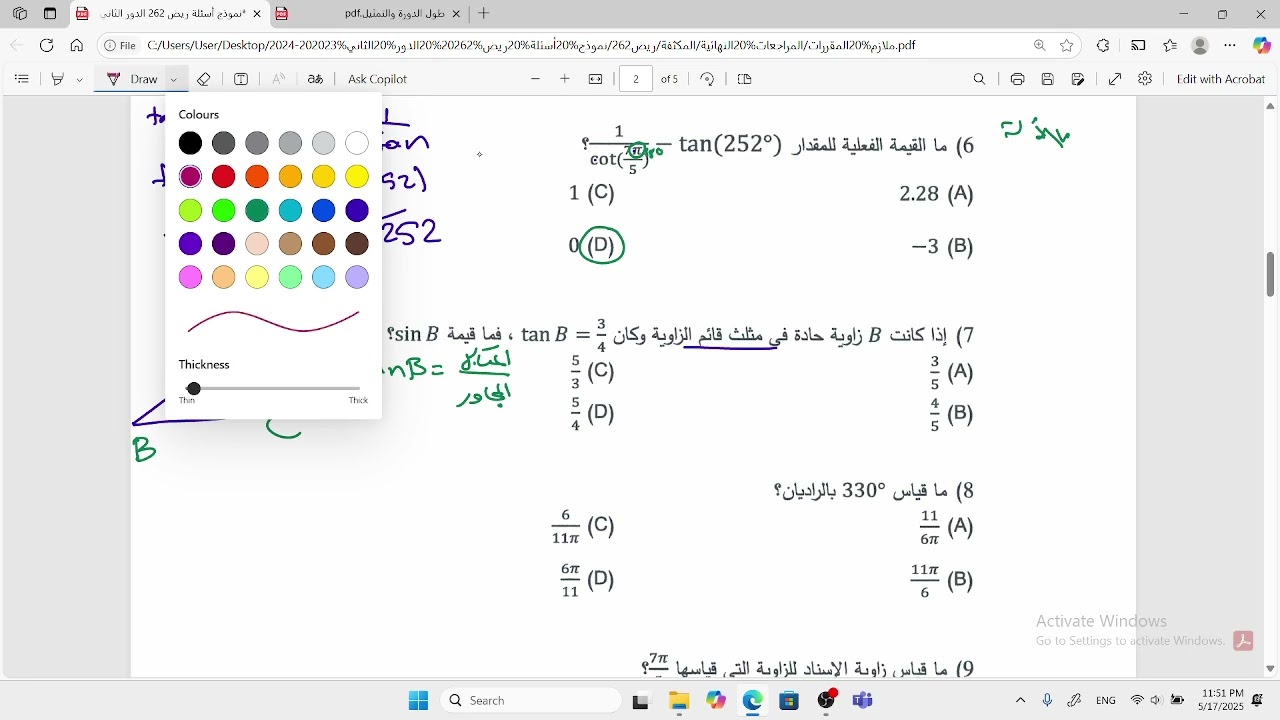 نموذج أسئلة ريض 262 الدور الثاني*
طول الدور والتمثيل.pdf
File
C:/Users/User/Desktop/2024-2023%20ملازم%20المقررات/المراجعات%20النهائية/المكثفة/ريض262/نموذج%20أسئلة%20ريض%20262%20الدور%20الثاني.pdf
Draw
Ask Copilot
2 of 5
Edit with Acrobat
Colours
Thickness
Thin
Thick
an
52)
252
6) ما القيمة الفعلية للمقدار tan(252°) − 1/cot(7π/5) ؟
2.28 (A)
1 (C)
−3 (B)
0 (D)
7) إذا كانت B زاوية حادة في مثلث قائم الزاوية وكان tan B = 3/4 ، فما قيمة sin B؟
3/5 (A)
5/3 (C)
4/5 (B)
5/4 (D)
nB = المقابل
المجاور
B
8) ما قياس 330° بالراديان؟
11/6π (A)
6/11π (C)
11π/6 (B)
6π/11 (D)
9) ما قياس زاوية الإسناد للزاوية التي قياسها 7π
Activate Windows
Go to Settings to activate Windows.
Search
ENG
11:51 PM
5/17/2025